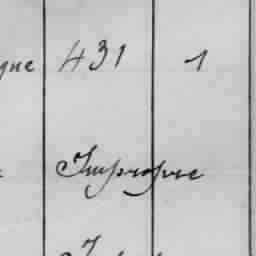 gne 431 1
Impropre